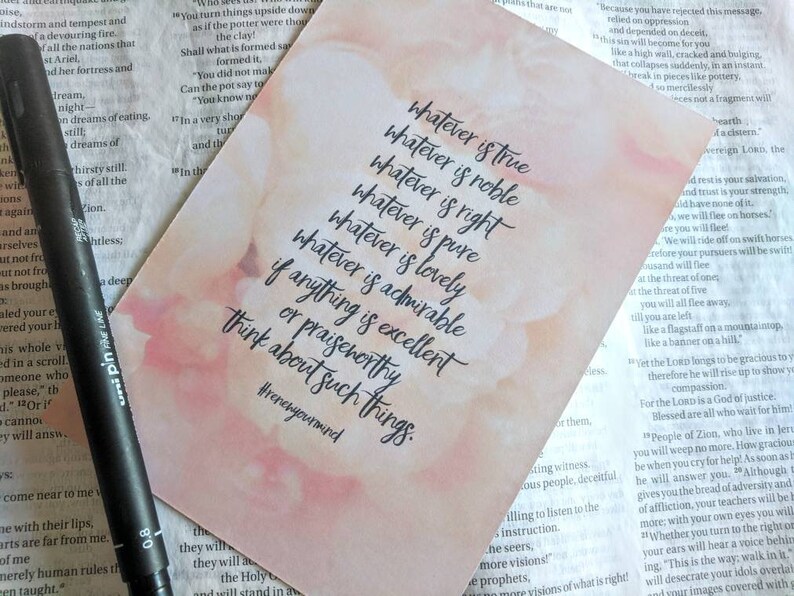 whatever is true
whatever is noble
whatever is right
whatever is pure
whatever is lovely
whatever is admirable
if anything is excellent
or praiseworthy
think about such things.
#renewyourmind
uni pin FINE LINE
0.8
windstorm and tempest and
of a devouring fire.
of all the nations that
st Ariel,
nd her fortress and
dream,
night—
n dreams of eating,
still;
n dreams of
thirsty still.
s of all the
Zion.
htless;
a deep
s whole vision
ed in a scroll.
omeone who
please," th
¹²Or i
cannot
they will answ
ys:
come near to me w
e with their lips,
arts are far from me.
of me
merely human rules the
een taught."
¹⁶You turn things upside down,
as if the potter were thou
the clay!
Shall what is formed say
formed it,
"You did not make
Can the pot say to
"You know no
¹⁷In a very shor
¹⁸In tha
they will
they will ac
the Holy G
and will stand in aw
"Because you have rejected this message,
relied on oppression
and depended on deceit,
this sin will become for you
like a high wall, cracked and bulging,
that collapses suddenly, in an instant.
break in pieces like pottery,
so mercilessly
eces not a fragment will
hearth
f a cistern."
vereign LORD, the
d rest is your salvation,
and trust is your strength,
ld have none of it.
o, we will flee on horses.'
re you will flee!
'We will ride off on swift horses.'
erefore your pursuers will be swift!
ousand will flee
at the threat of one;
t the threat of five
you will all flee away,
till you are left
like a flagstaff on a mountaintop,
like a banner on a hill."
¹⁸Yet the LORD longs to be gracious to y
therefore he will rise up to show y
compassion.
For the LORD is a God of justice.
Blessed are all who wait for him!
¹⁹People of Zion, who live in Jeru
you will weep no more. How gracious
be when you cry for help! As soon as h
he will answer you. ²⁰Although t
gives you the bread of adversity and
of affliction, your teachers will be h
more; with your own eyes you will
²¹Whether you turn to the right or
your ears will hear a voice behin
ing, "This is the way; walk in it."
will desecrate your idols overla
for them."
esting witness.
ous people, deceitful
illing to listen to the
instruction.
he seers,
more visions!"
prophets,
no more visions of what is right!